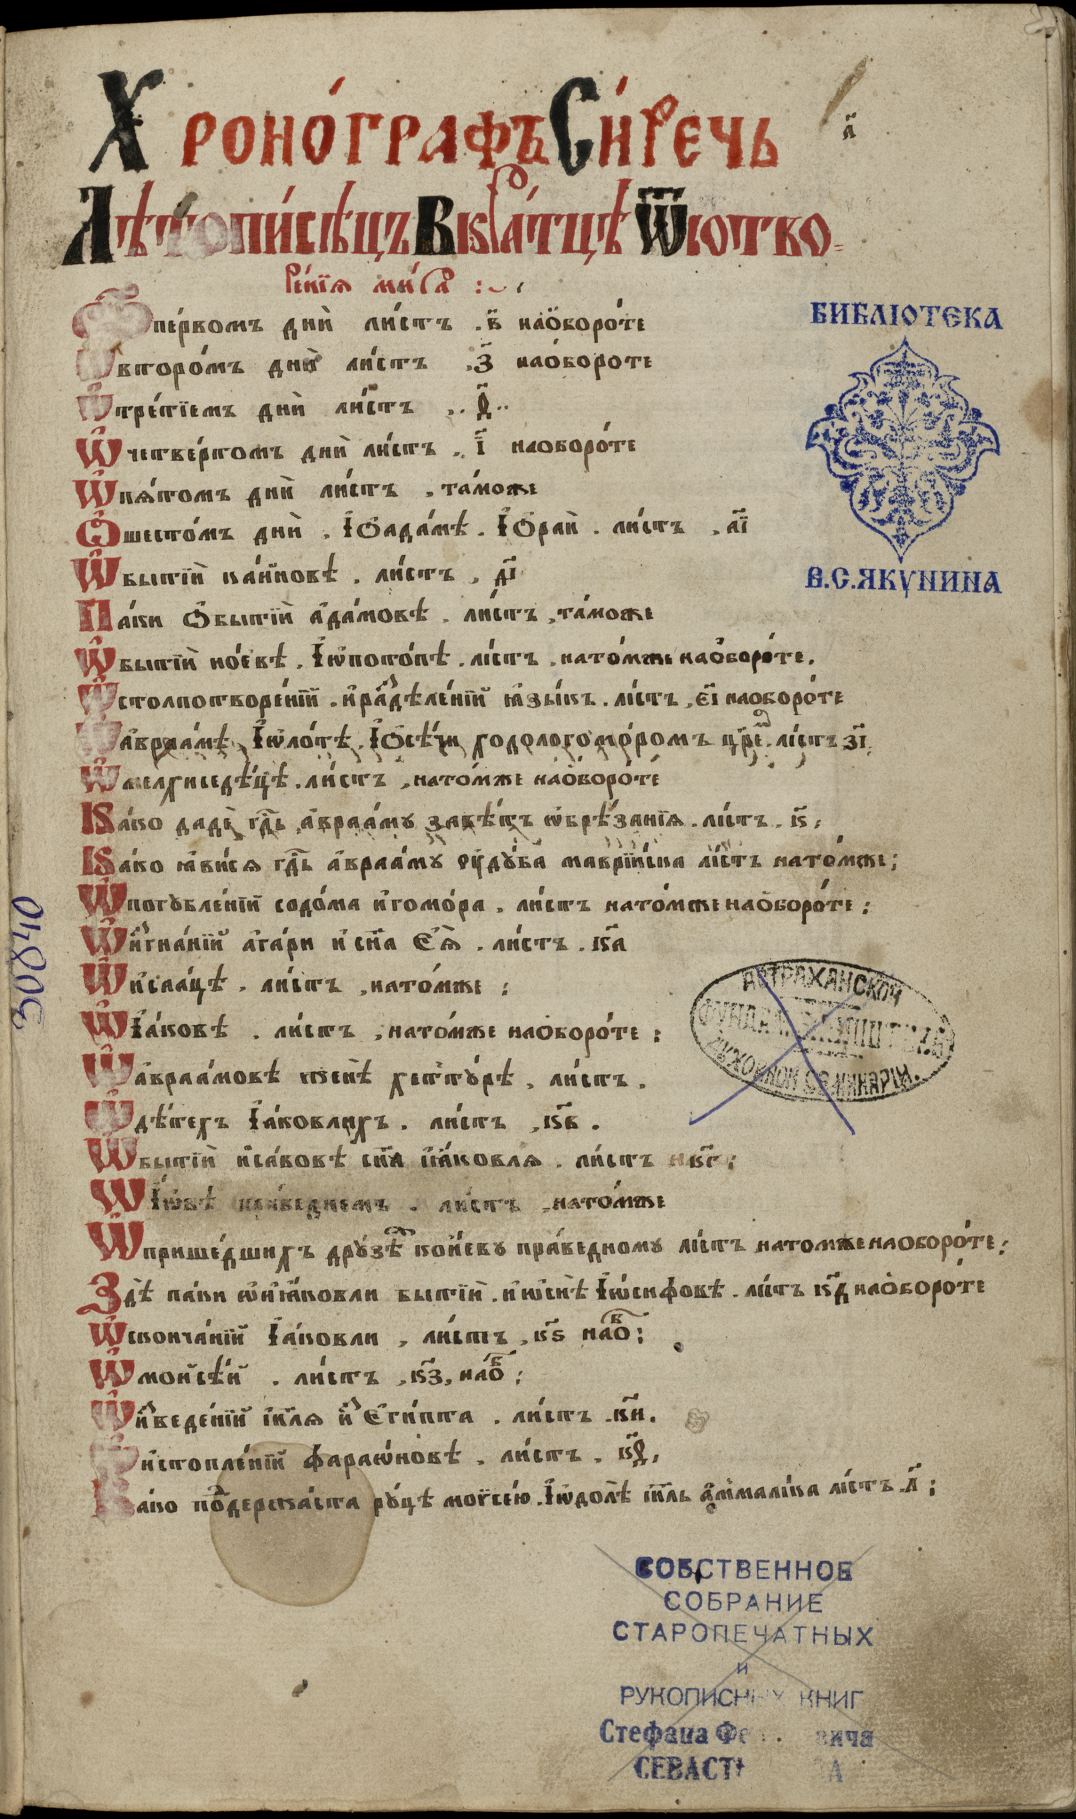 Хроно́графъ Си́речь
а҃
Лѣтопи́сѣцъ Вкра́тцѣ Ѿсотво-
ре́нїѧ ми́ра :
Ѡ пе́рвомъ днѝ ли́стъ . в҃ наѡ҆боро́те
Ѡ второ́мъ днѝ ли́стъ . з҃ наѻборо́те
Ѡ тре́тїемъ днѝ ли́стъ . ѳ҃ .
Ѡ четве́ртомъ днѝ ли́стъ . і҃ наоборо́те
Ѡ пѧ́томъ днѝ ли́стъ . та́може
Ѻ шесто́мъ днѝ . І҆ѻ҆ада́мѣ . І҆ѻ҆раѝ . ли́стъ . а҃і
Ѡ бытїѝ ка́иновѣ . ли́стъ . д҃і
Па́ки ѻ҆бытїѝ а҆да́мовѣ . ли́стъ . та́може
Ѡ бытїѝ но́евѣ . І҆ѡ҆пото́пѣ . лі́стъ . нато́мже наѻ҆боро́те .
Ѡ столпотворе́нїй . и҆раздѣле́нїй ꙗ҆зы́къ . лі́стъ . є҃і наоборо́те
Ѡ а҆враа́мѣ . І҆ѡ҆ло́тѣ . І҆ѻ҆сѣ́чи ходологомо́ромъ цр҃емъ . лі́стъ з҃і
Ѡ мелхиседе́цѣ . ли́стъ . нато́мже наѻборо́те
Ка́ко дадѐ гдⷭ҇ь а҆враа́му завѣ́тъ ѡ҆брѣ́занїѧ . лі́стъ . к҃ :
Ка́ко ꙗ҆ви́сѧ гдⷭ҇ь а҆враа́му ꙋ҆дꙋ́ба маврі́йска лі́стъ нато́мже ;
Ѡ погꙋбле́нїй содо́ма и҆гомо́ра . ли́стъ нато́мже наѻборо́те :
Ѡ и҆згна́нїй а҆га́ри и҆ сн҃а Є҆ѧ̀ . ли́стъ . к҃а
Ѡ и҆саа́цѣ . ли́стъ . нато́мже :
Ѡ І҆а́ковѣ . ли́стъ . нато́мже наѻборо́те :
Ѡ а҆враа́мовѣ женѣ̀ хетту́рѣ . ли́стъ .
Ѡ дѣ́техъ І҆а́ковлихъ . ли́стъ . к҃в .
Ѡ бытїѝ и҆са́вовѣ сн҃а і҆а́ковлѧ . ли́стъ к҃г ;
Ѡ І҆ѡ́вѣ пра́веднемъ . ли́стъ . нато́мже
Ѡ прише́дшихъ дрꙋзѣ́хъ коі҆́еву пра́ведному лі́стъ нато́мже наоборо́те :
Здѣ̀ па́ки ѡ҆и҆а́ковли бытїѝ . и҆ѡ҆снѣ̀ І҆ѡ́сифовѣ . лі́стъ к҃д наѻборо́те
Ѡ сконча́нїй І҆а́ковли . ли́стъ . к҃ѕ наѻ҆в :
Ѡ моѷсе́й . ли́стъ . к҃з . наѻ҆в :
Ѡ и҆зведе́нїй і҆и҃лѧ и҆з̾ Є҆гі́пта . ли́стъ . к҃и .
Ѡ и҆стопле́нїй фараѡ́новѣ . ли́стъ . к҃ѳ ,
Ка́ко поддержа́ста рꙋ́цѣ моѷсе́ю . І҆ѡ҆долѣ̀ і҆и҃ль а҆мали́ка лі́стъ . л҃ ;
БИБЛІОТЕКА
В.С.ЯКУНИНА
30840
АСТРАХАНСКОЙ
ДУХОВНОЙ СЕМИНАРІИ.
СОБСТВЕННОЕ
СОБРАНИЕ
СТАРОПЕЧАТНЫХ
и
РУКОПИСНЫХ КНИГ
Стефана